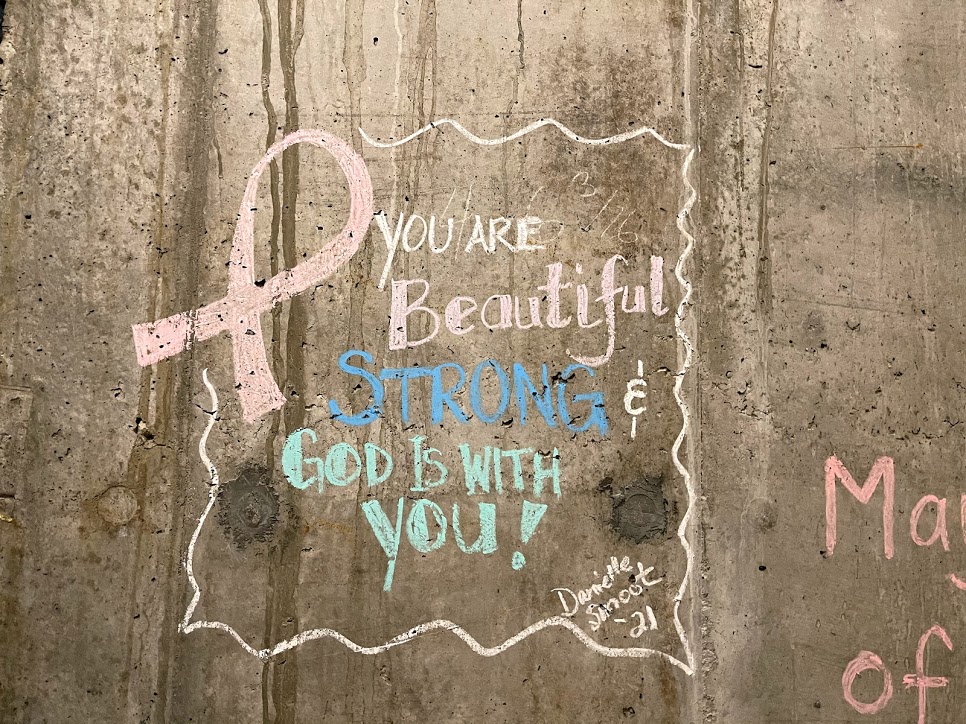 YOU ARE
Beautiful
STRONG &
GOD IS WITH
YOU!
Danielle
Smoot
-21
Ma
of